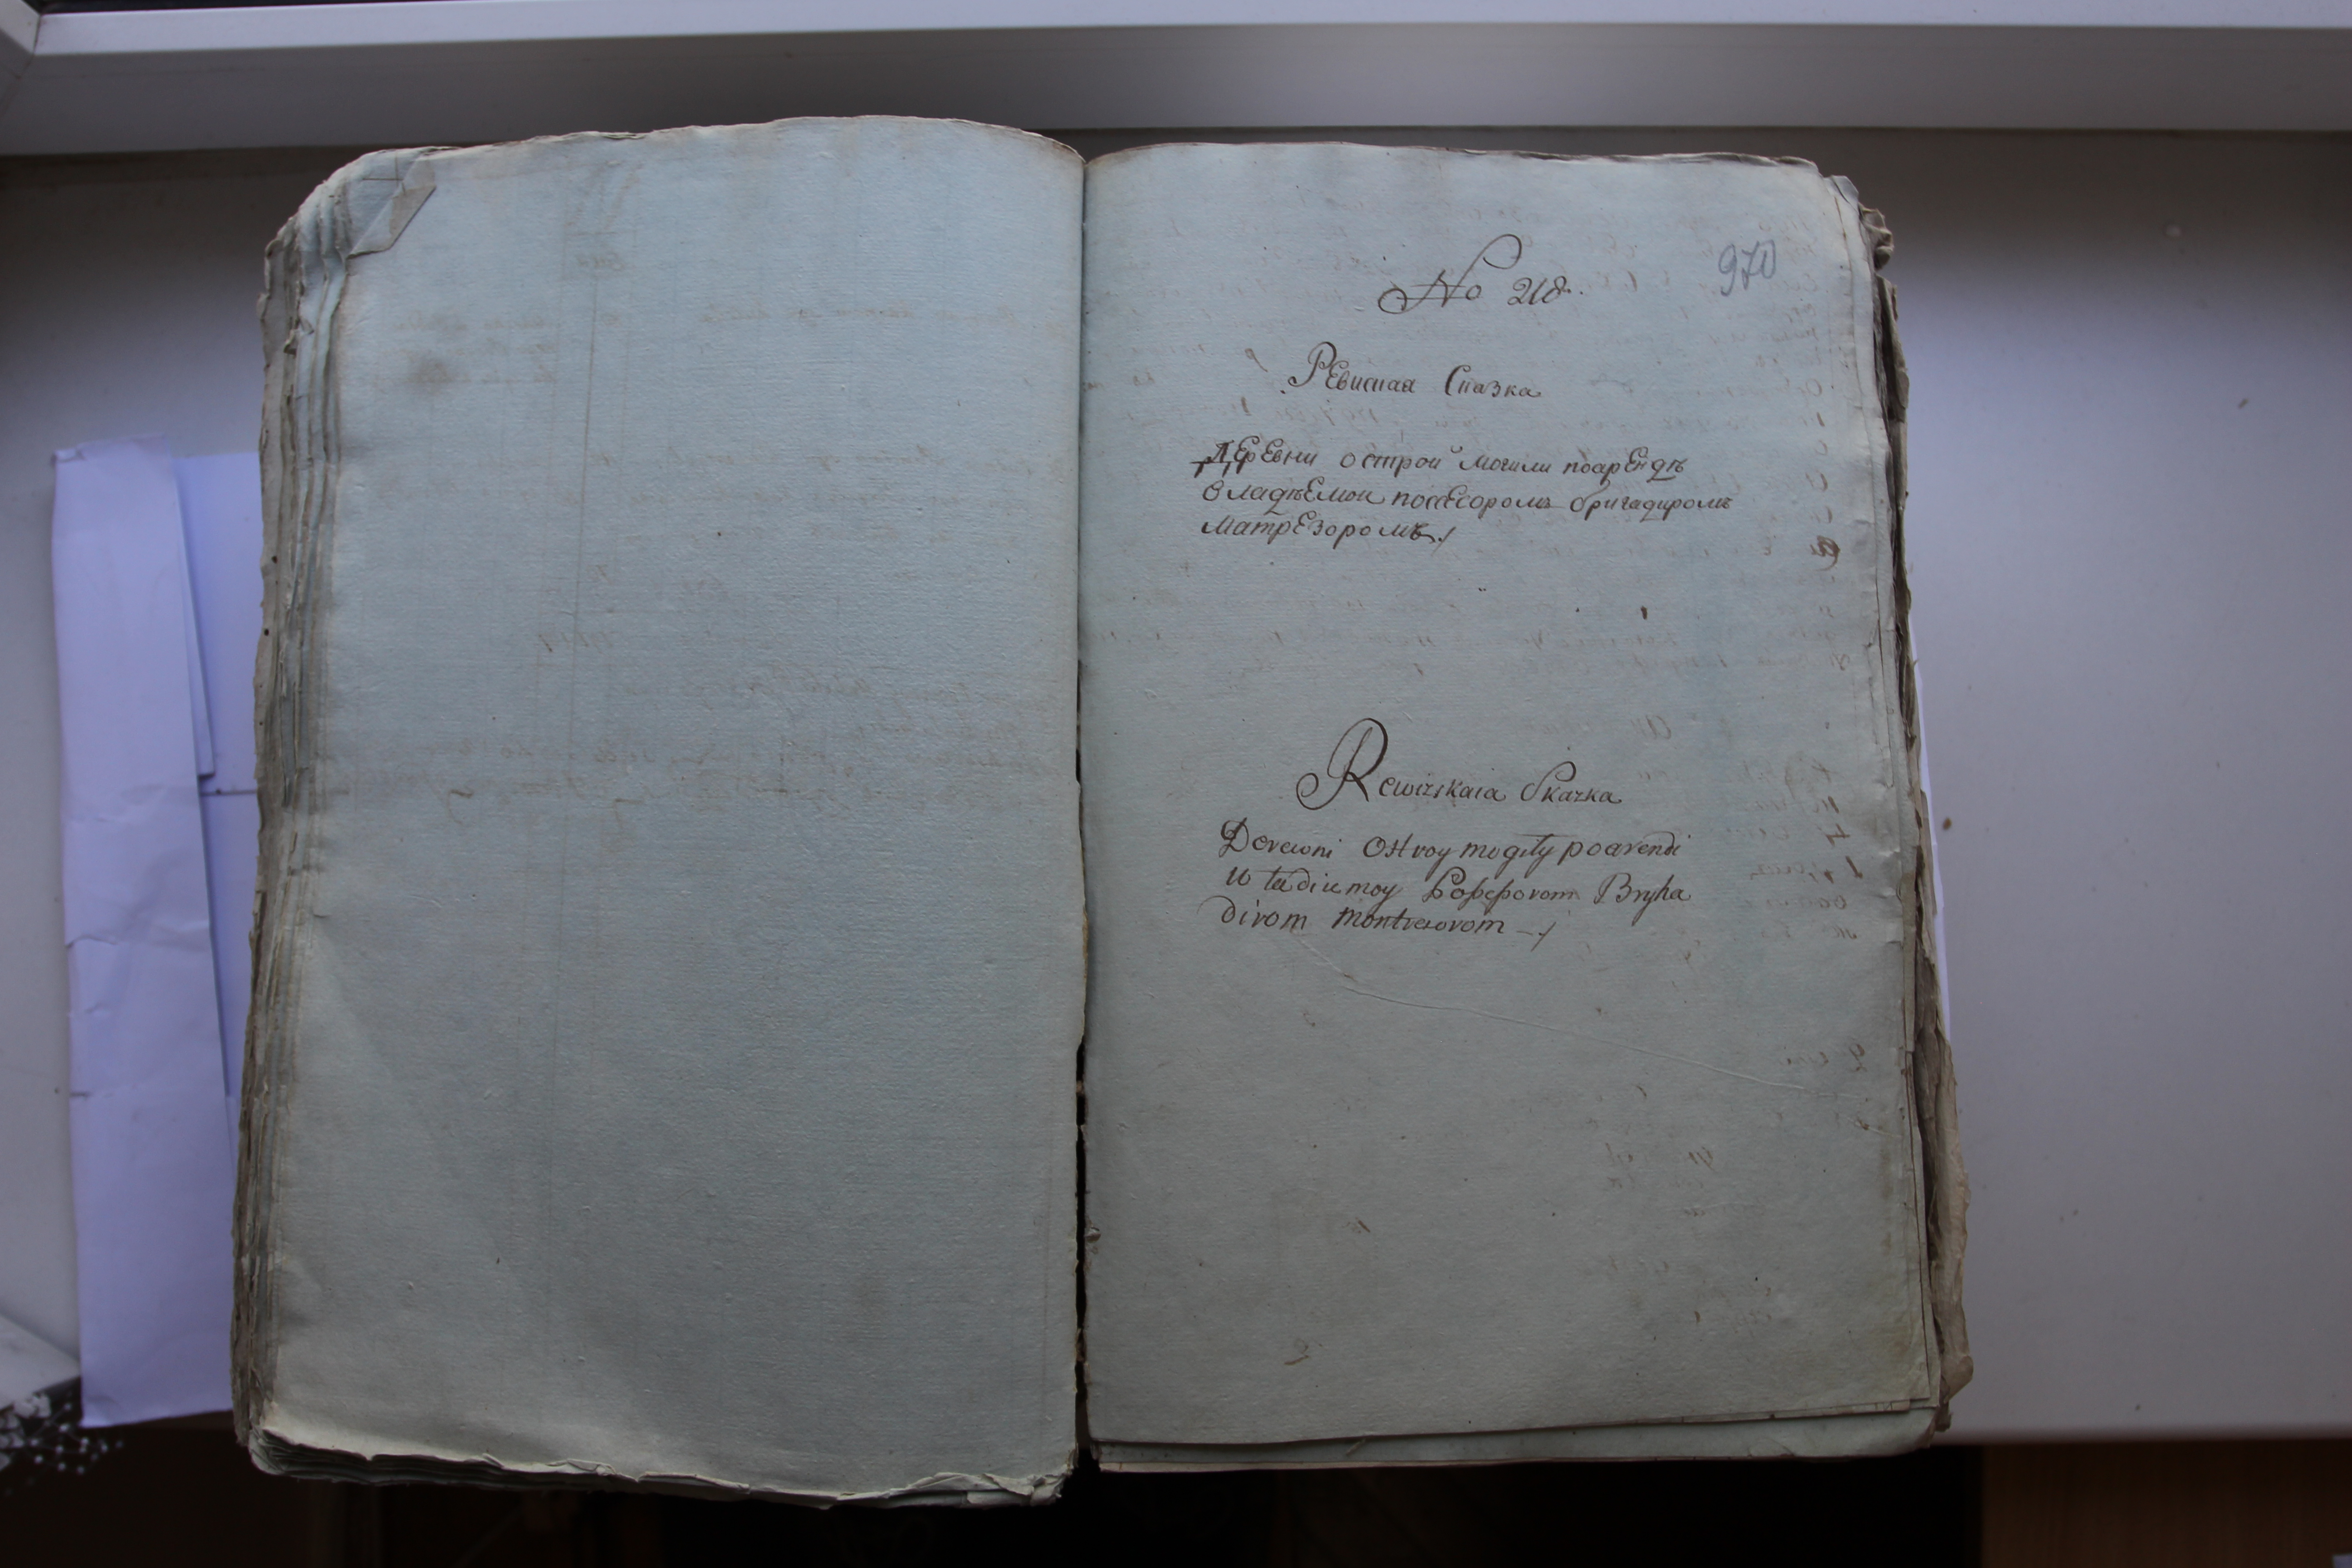 No 218.
970
Ревиская Сказка
ДЕрЕвни острой могили поарЕндѣ
владѣЕмой посЕсоромъ бригадиромъ
МатрЕзоромъ ./
Rewizskaia Skazka
Derewni Ostroy mogiły poarendi
władiemoy Possessorom Bryha
dirom Montresorom ./